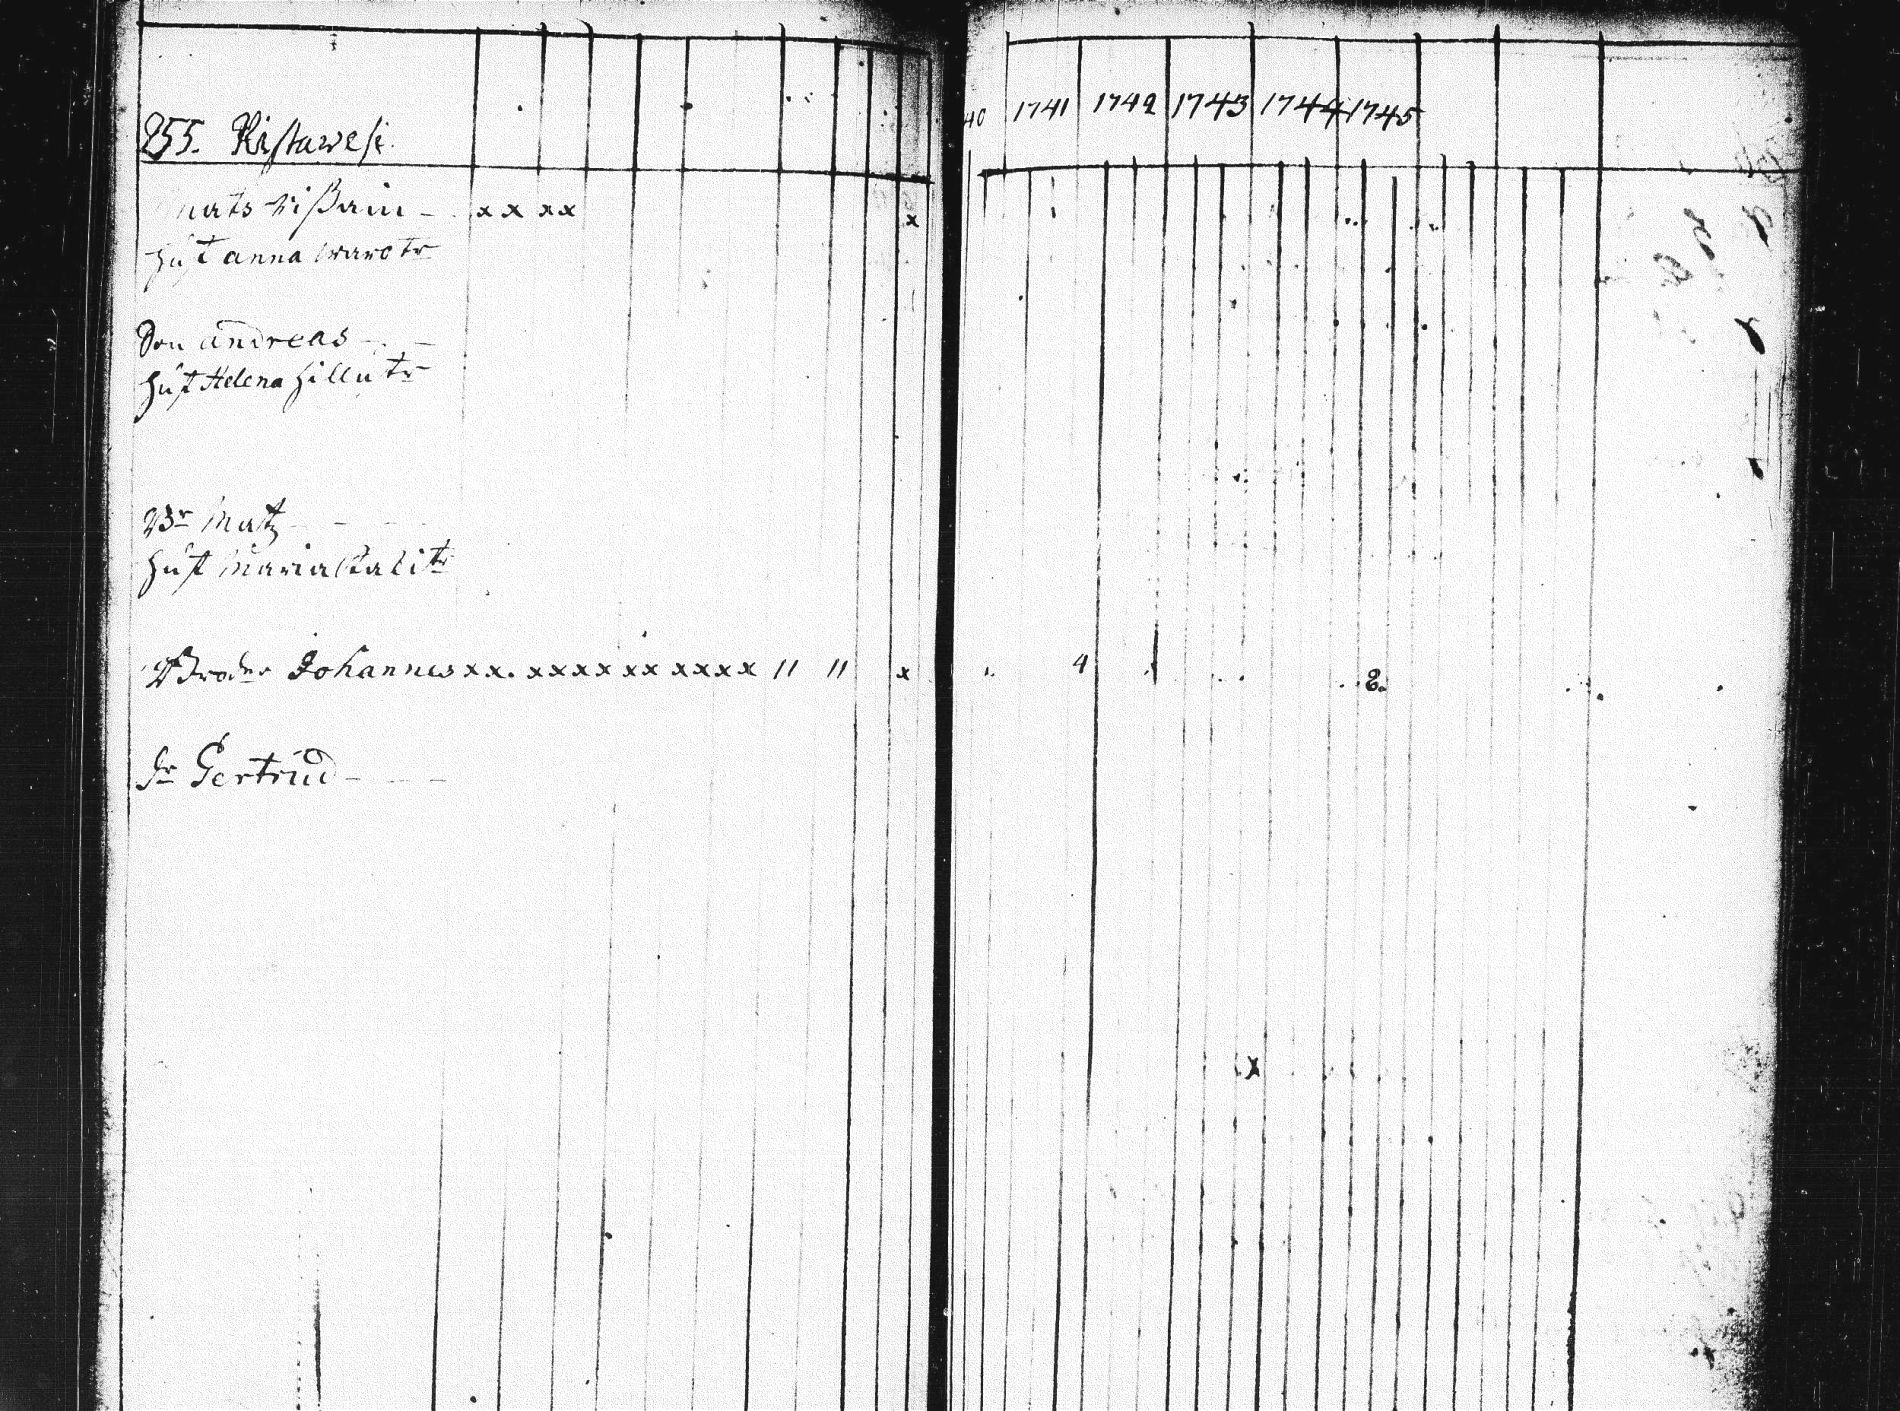 40 1741 1742 1743 1744 1745
255. Kistawesi.
Mats Rißain - x x x x x
Hust anna
Son andreas - . -
Hust Helena Hillu tr
Br Matz - - -
Hust Maria
Broder Johannes x x . x x x x x x x x x x 11 11 x 4
dr Gertrud - - -
x